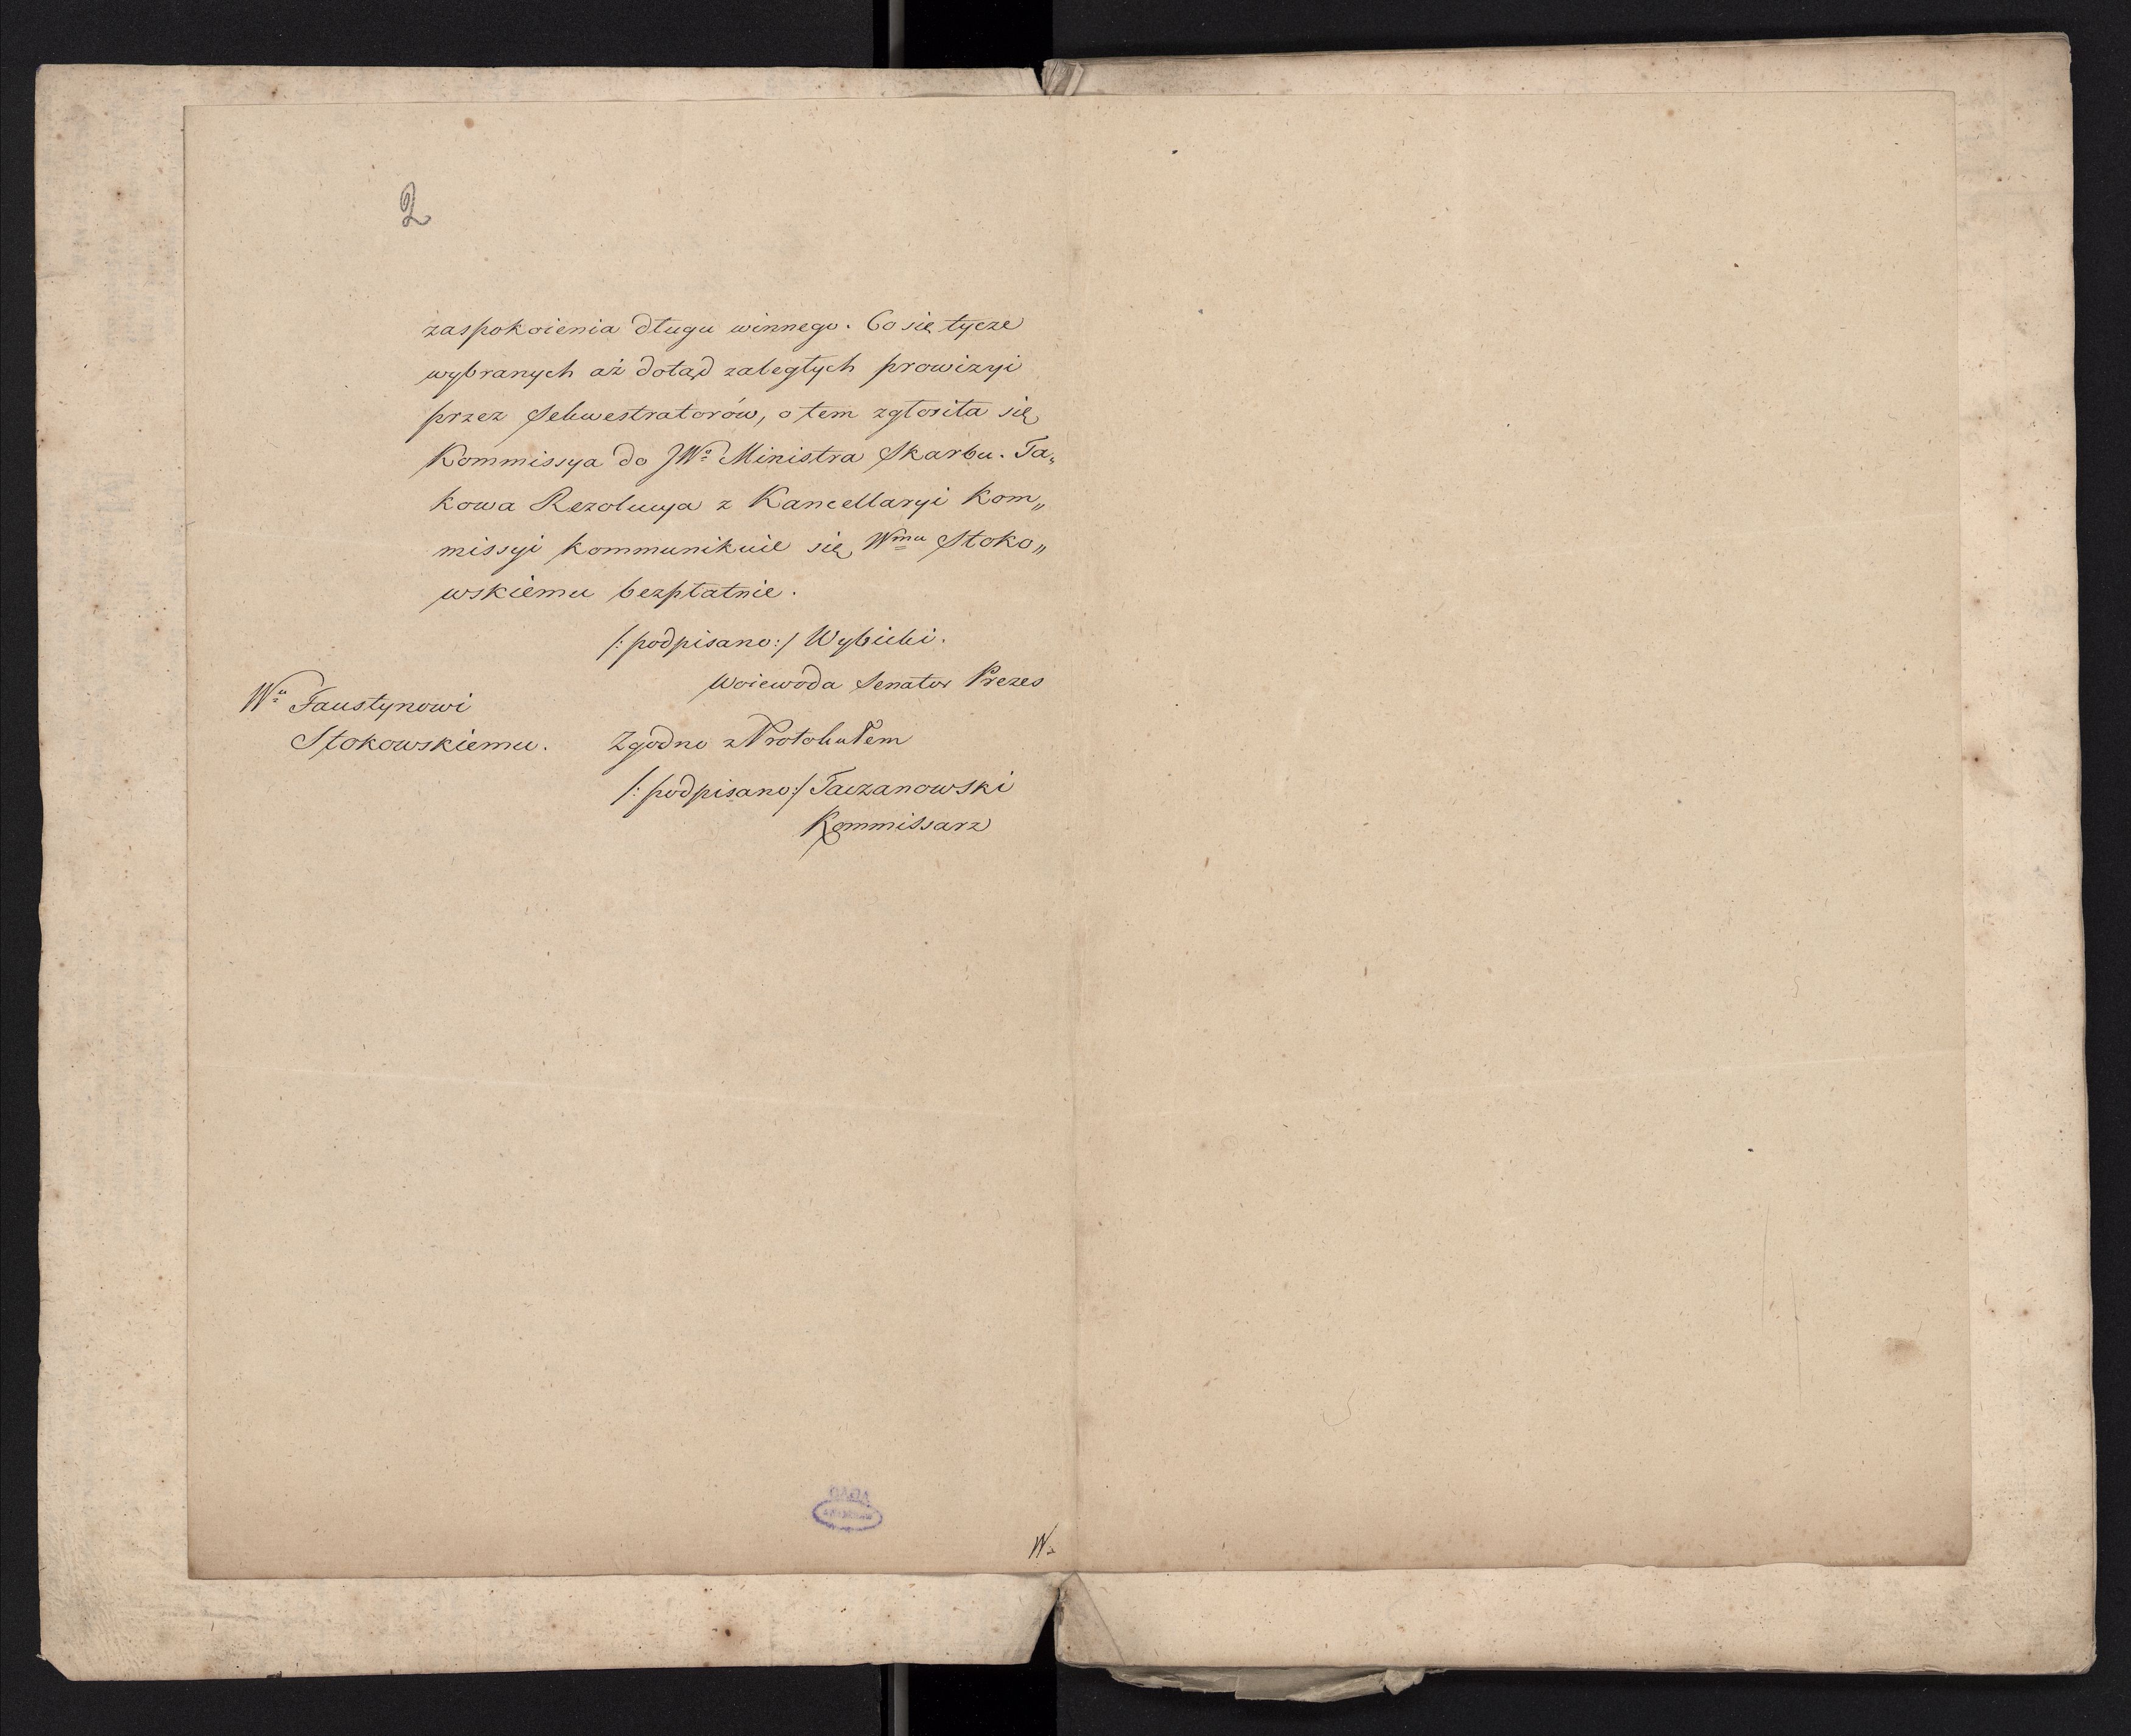 2
zaspokoienia długu winnego. Co się tycze
wybranych aż dotąd zaległych prowizyi
przez Sekwestratorów, o tem zgłosiła się
Kommissya do JWo Ministra Skarbu. Ta„
kowa Rezolucya z Kancellaryi Kom„
missyi kommunikuie się Wmu Stoko„
wskiemu bezpłatnie.
/: podpisano :/ Wybicki.
Woiewoda Senator Prezes
Wu Faustynowi
Stokowskiemu.
Zgodno z Protokułem
/: podpisano :/ Taczanowski
Kommissarz
AGAD
W